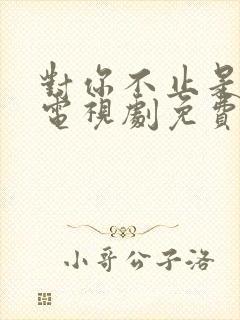 對你不止是
電視劇免費
小哥公子洛